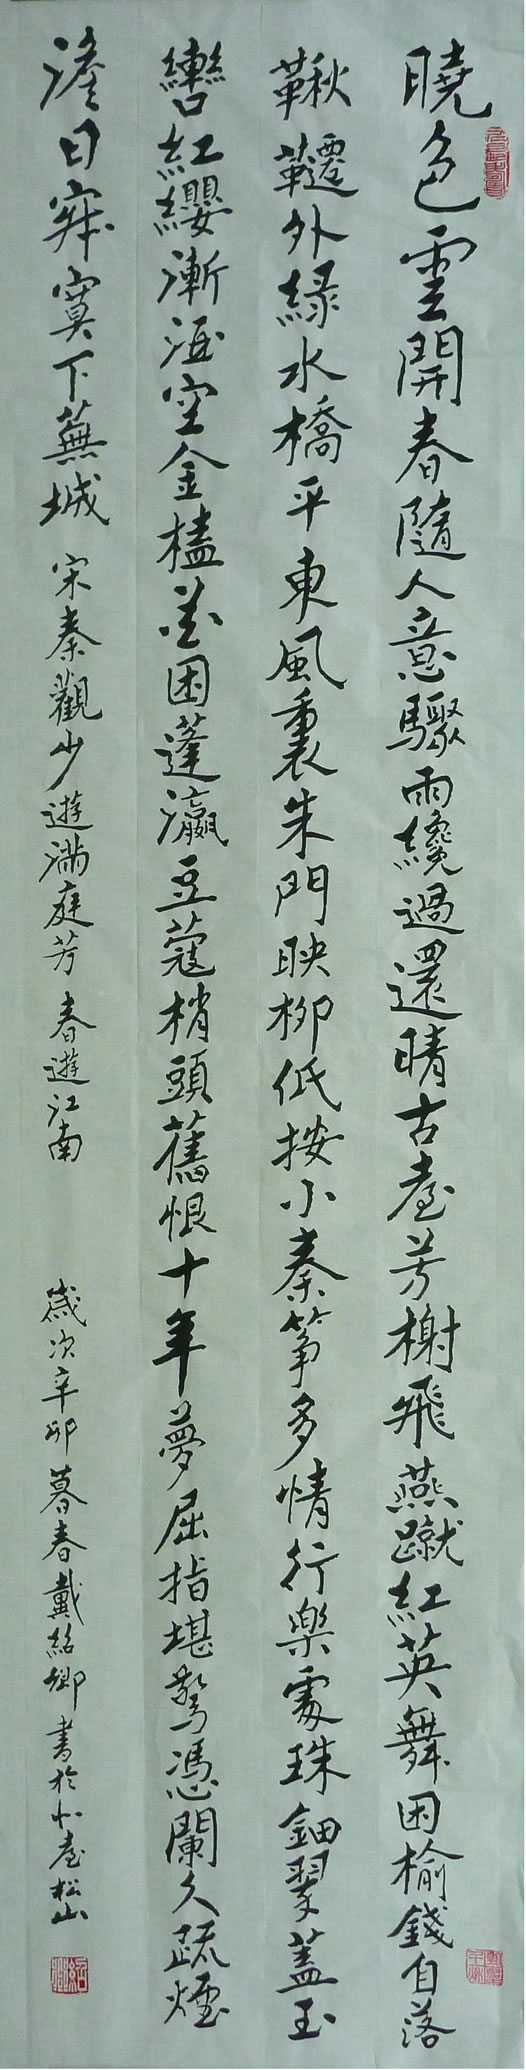 曉色雲開春隨人意驟雨纔過還晴古臺芳榭飛燕蹴紅英舞困榆錢自落
鞦韆外綠水橋平東風裏朱門映柳低按小秦筝多情行樂處珠鈿翠蓋玉
轡紅纓漸酒空金榼花困蓬瀛豆蔻梢頭舊恨十年夢屈指堪驚憑闌久疏煙
淡日寂寞下蕪城 宋秦觀少遊滿庭芳 春遊江南 歲次辛卯暮春戴紹卿書於北臺松山